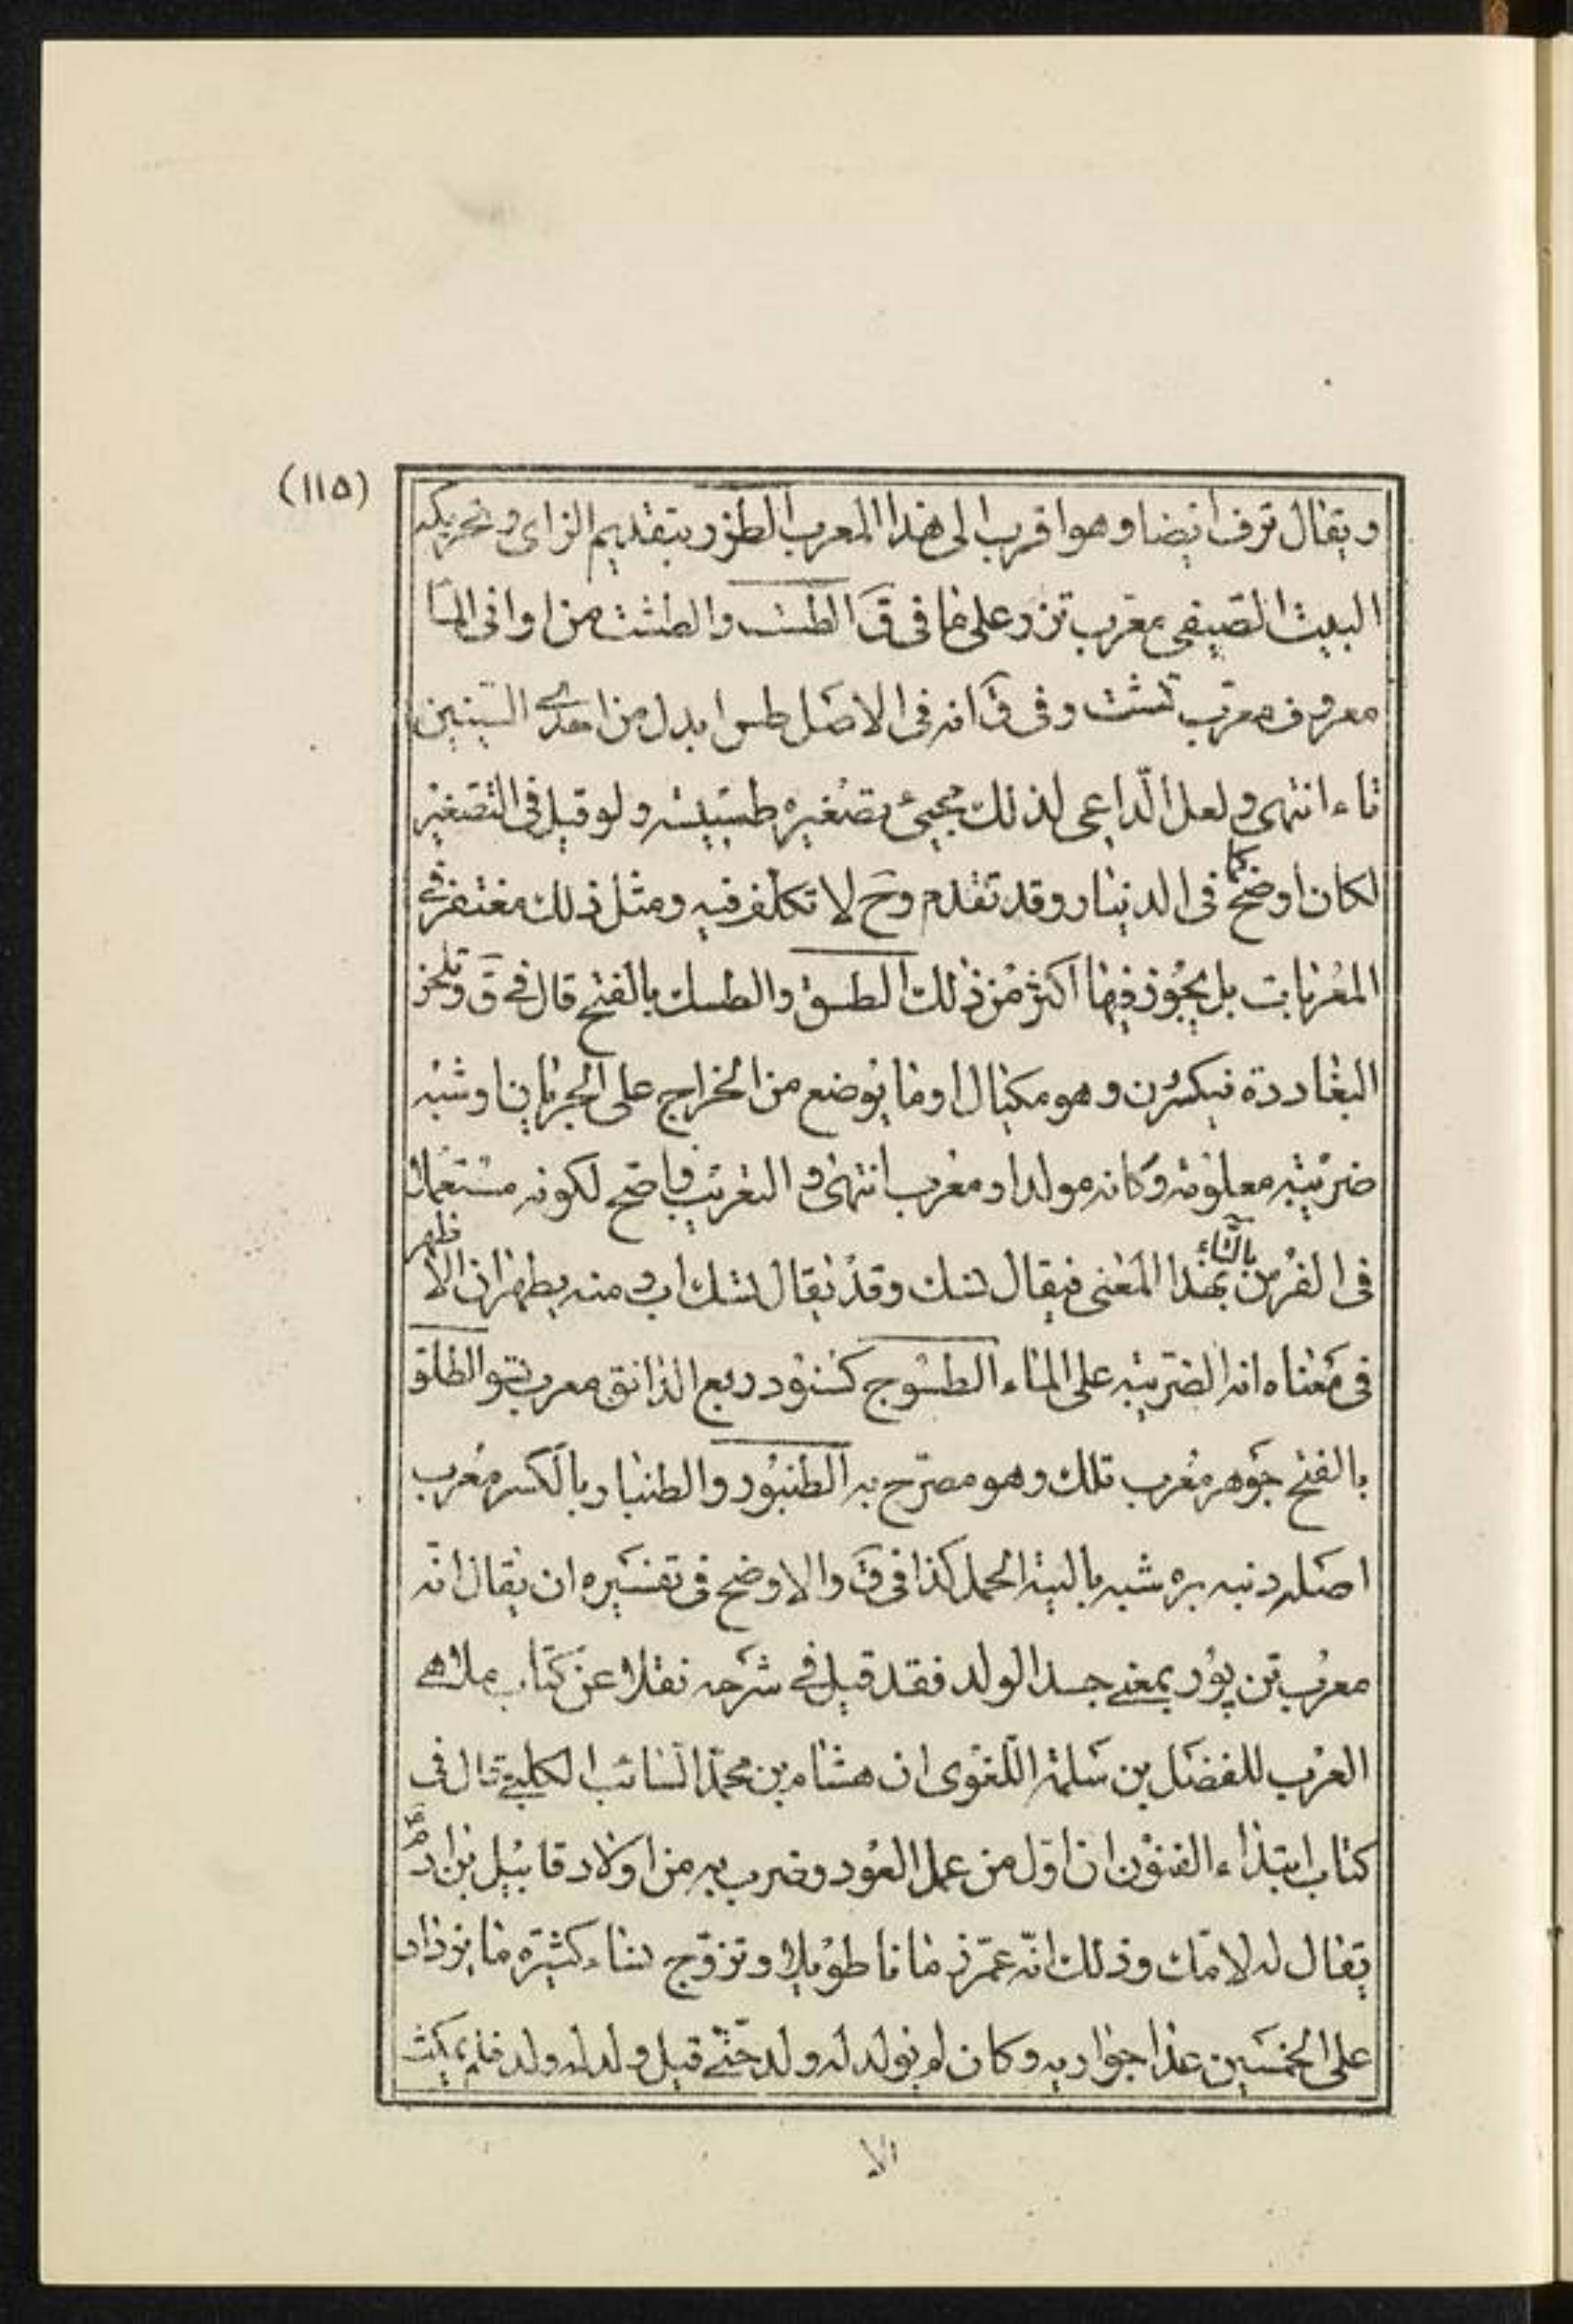 (١١٥)
ويقال ترف ايضا وهو اقرب الى هذا المعرب الطزر بتقديم الزاى وتحريكه
البيت الصيفى معرب تزر على ما فى ق الطست والطشت من اوانى الما
معروف معرب تشت وفى ق انه فى الاصل طس ابدل من احدى السينين
تاء انتهى ولعل الداعى لذلك مجيئ تصغيره طسيسه ولو قيل فى التصغير
لكان اوضح كما فى الدينار وقد تقدم وح لا تكلف فيه ومثل ذلك مغتفر فى
المعربات بل يجوز فيها اكثر من ذلك الطسق والطسك بالفتح قال فى ق وتلحن
البغاددة فيكسرن وهو مكيال او ما يوضع من الخراج على الجربان او شبه
ضريبه معلومه وكانه مولد او معرب انتهى و التعريب واضح لكونه مستعملا
فى الفرس بالتاء بهذا المعنى فيقال تسك وقد يقال تسك اب ومنه يظهر ان الاظهر
فى معناه انه الضريبه على الماء الطسوج كسنور ربع الدانق معرب تسو الطلق
بالفتح جوهر معرب تلك وهو مصرح به الطنبور والطنبار بالكسر معرب
اصله دنبه بره شبه بالية الحمل كذا فى ق والاوضح فى تفسيره ان يقال انه
معرب تن پور بمعنى جسد الولد فقد قيل فى شرحه نقلا عن كتاب ملاهى
العرب للمفضل بن سلمة اللغوى ان هشام بن محمد السائب الكلبى قال فى
كتاب ابتداء الفنون ان اول من عمل العود وضرب به من اولاد قابيل بن ادم
يقال له لامك وذلك انه عمر زمانا طويلا وتزوج نساء كثيره ما يزداد
على الخمسين عدا جواريه وكان لم يولد له ولد حتى قيل ولد له ولد فلم يمكث
الا